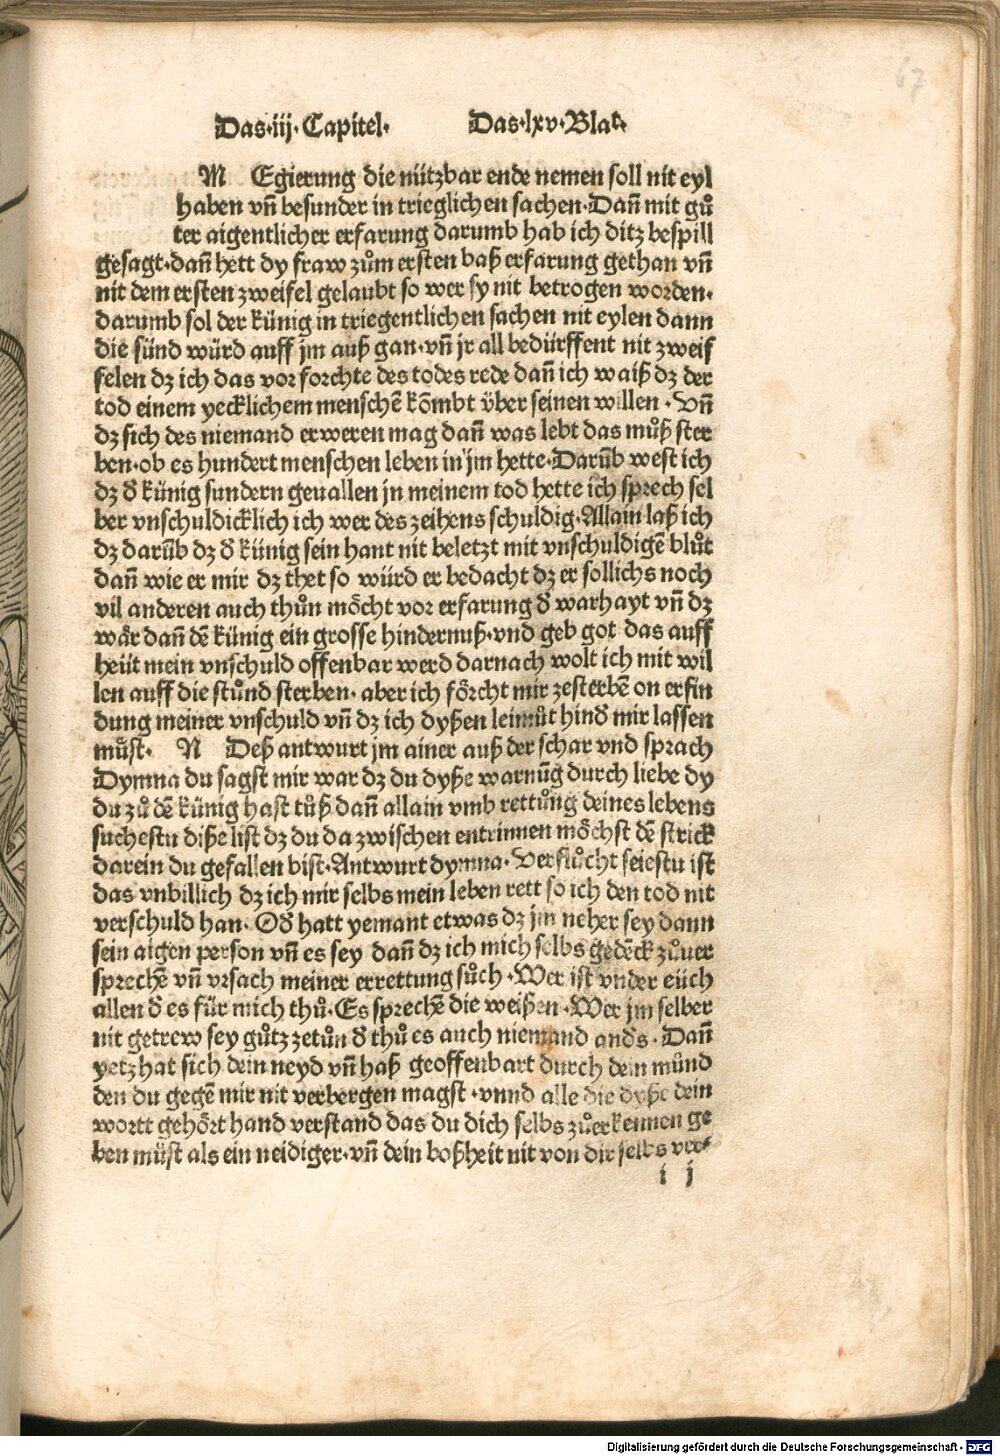 67
Das·iij·Capitel· Das·lxv·Blat·
M Egierung die nützbar ende nemen soll nit eyl
haben vñ besunder in trieglichen sachen·Dañ mit gů
ter aigentlicher erfarung darumb hab ich ditz bespill
gesagt·dañ hett dy fraw zům ersten baß erfarung gethan vñ
nit dem ersten zweifel gelaubt so wer sy nit betrogen worden·
darumb sol der künig in triegentlichen sachen nit eylen dann
die sünd würd auff jm auß gan·vñ jr all bedürffent nit zweif
felen dz ich das vor forchte des todes rede dañ ich waiß dz der
tod einem yecklichem menschē kōmbt über seinen willen·Vñ
dz sich des niemand erweren mag dañ was lebt das můß ster
ben·ob es hundert menschen leben in jm hette·Darūb west ich
dz d̕ künig sundern geuallen jn meinem tod hette ich sprech sel
ber vnschuldicklich ich wer des zeihens schuldig·Allain laß ich
dz darūb dz d̕ künig sein hant nit beletzt mit vnschuldigē blůt
dañ wie er mir dz thet so würd er bedacht dz er sollichs noch
vil anderen auch thůn möcht vor erfarung d̕ warhayt vñ dz
wär dañ dē künig ein grosse hindernuß·vnd geb got das auff
heüt mein vnschuld offenbar werd darnach wolt ich mit wil
len auff die stůnd sterben·aber ich förcht mir zesterbē on erfin
dung meiner vnschuld vñ dz ich dyßen leimůt hind̕ mir lassen
müst· N Deß antwurt jm ainer auß der schar vnd sprach
Dymna du sagst mir war dz du dyße warnūg durch liebe dy
du zů dē künig hast tůß dañ allain vmb rettůng deines lebens
suchestu diße list dz du da zwischen entrinnen möchst dē strick
darein du gefallen bist·Antwurt dymna·Verflůcht seiestu ist
das vnbillich dz ich mir selbs mein leben rett so ich den tod nit
verschuld han·Od̕ hatt yemant etwas dz jm neher sey dann
sein aigen person vñ es sey dañ dz ich mich selbs gedēck zůuer
sprechē vñ vrsach meiner errettung sůch·Wer ist vnder eüch
allen d̕ es für mich thů·Es sprechē die weißen·Wer jm selber
nit getrew sey gůtz zetůn d̕ thů es auch niemand and̕s·Dañ
yetz hat sich dein neyd vñ haß geoffenbart durch dein můnd
den du gegē mir nit verbergen magst·vnnd alle die dyße dein
wortt gehört hand verstand das du dich selbs zůerkennen ge
ben müst als ein neidiger·vñ dein boßheit nit von dir selbs ver⸗
i j
Digitalisierung gefördert durch die Deutsche Forschungsgemeinschaft - DFG